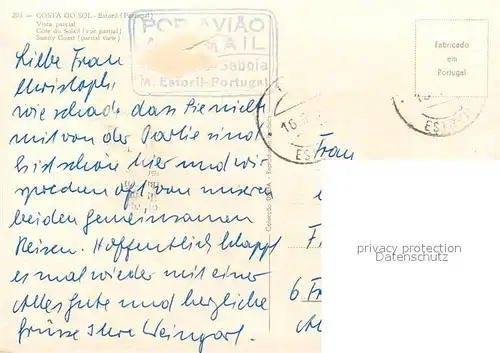 203 — COSTA DO SOL - Estoril (Portugal)
Vista parcial
Côte du Soleil (vue partiel)
Sunny Coast (partial view)
POR AVIÃO
AIR MAIL
Saboia
M. Estoril-Portugal
Fabricado
em
Portugal
Liebe Frau
Christoph,
wie schade dass Sie nicht
mit von der Partie sind
Es ist schön hier und wir
sprechen oft von unseren
beiden gemeinsamen
Reisen. Hoffentlich klappt
es mal wieder mit einer
Alles gute und herzliche
Grüsse Ihre Weingart.
16
16
Frau
F
6 Fr
A
privacy protection
Datenschutz